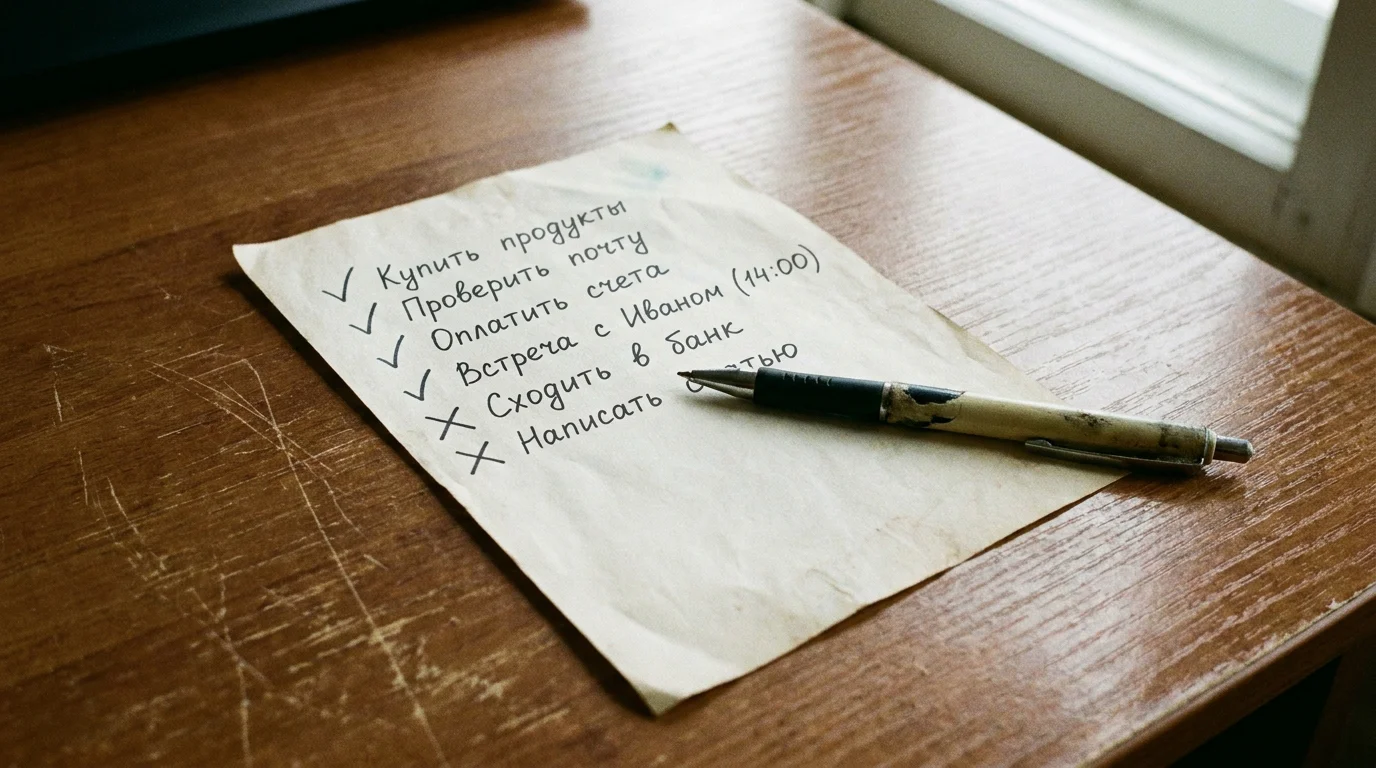 ✓ Купить продукты
✓ Проверить почту
✓ Оплатить счета
✓ Встреча с Иваном (14:00)
✗ Сходить в банк
✗ Написать